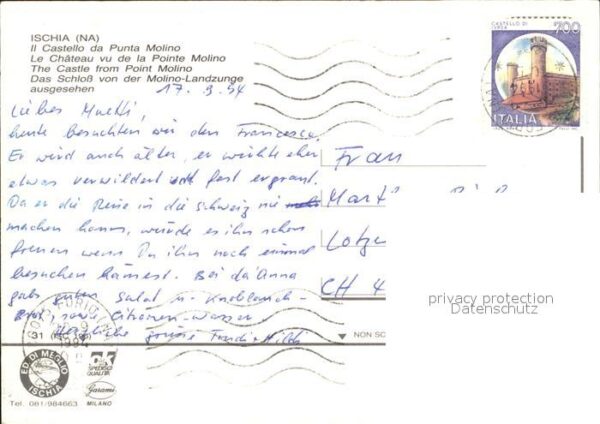 ISCHIA (NA)
Il Castello da Punta Molino
Le Château vu de la Pointe Molino
The Castle from Point Molino
Das Schloß von der Molino-Landzunge
ausgesehen
CASTELLO DI
IVREA
700
ITALIA
17.9.94
Liebes Muetti,
heute besuchten wir den Francesco.
Er wird auch älter, er wirkte eher
etwas verwildert und fast ergraut.
Da er die Reise in die Schweiz nie
machen kann, würde es ihn schon
freuen wenn Du ihn noch einmal
besuchen kämest. Bei da Anna
gabs guten Salat u. Knoblauch-
brot, sowie Citronen-wasser
Herzliche Grüsse
Frau
CH 4
privacy protection
Datenschutz
31
NON SC
ED. DI MEGLIO
ISCHIA
Garami
MILANO
Tel. 081/984663